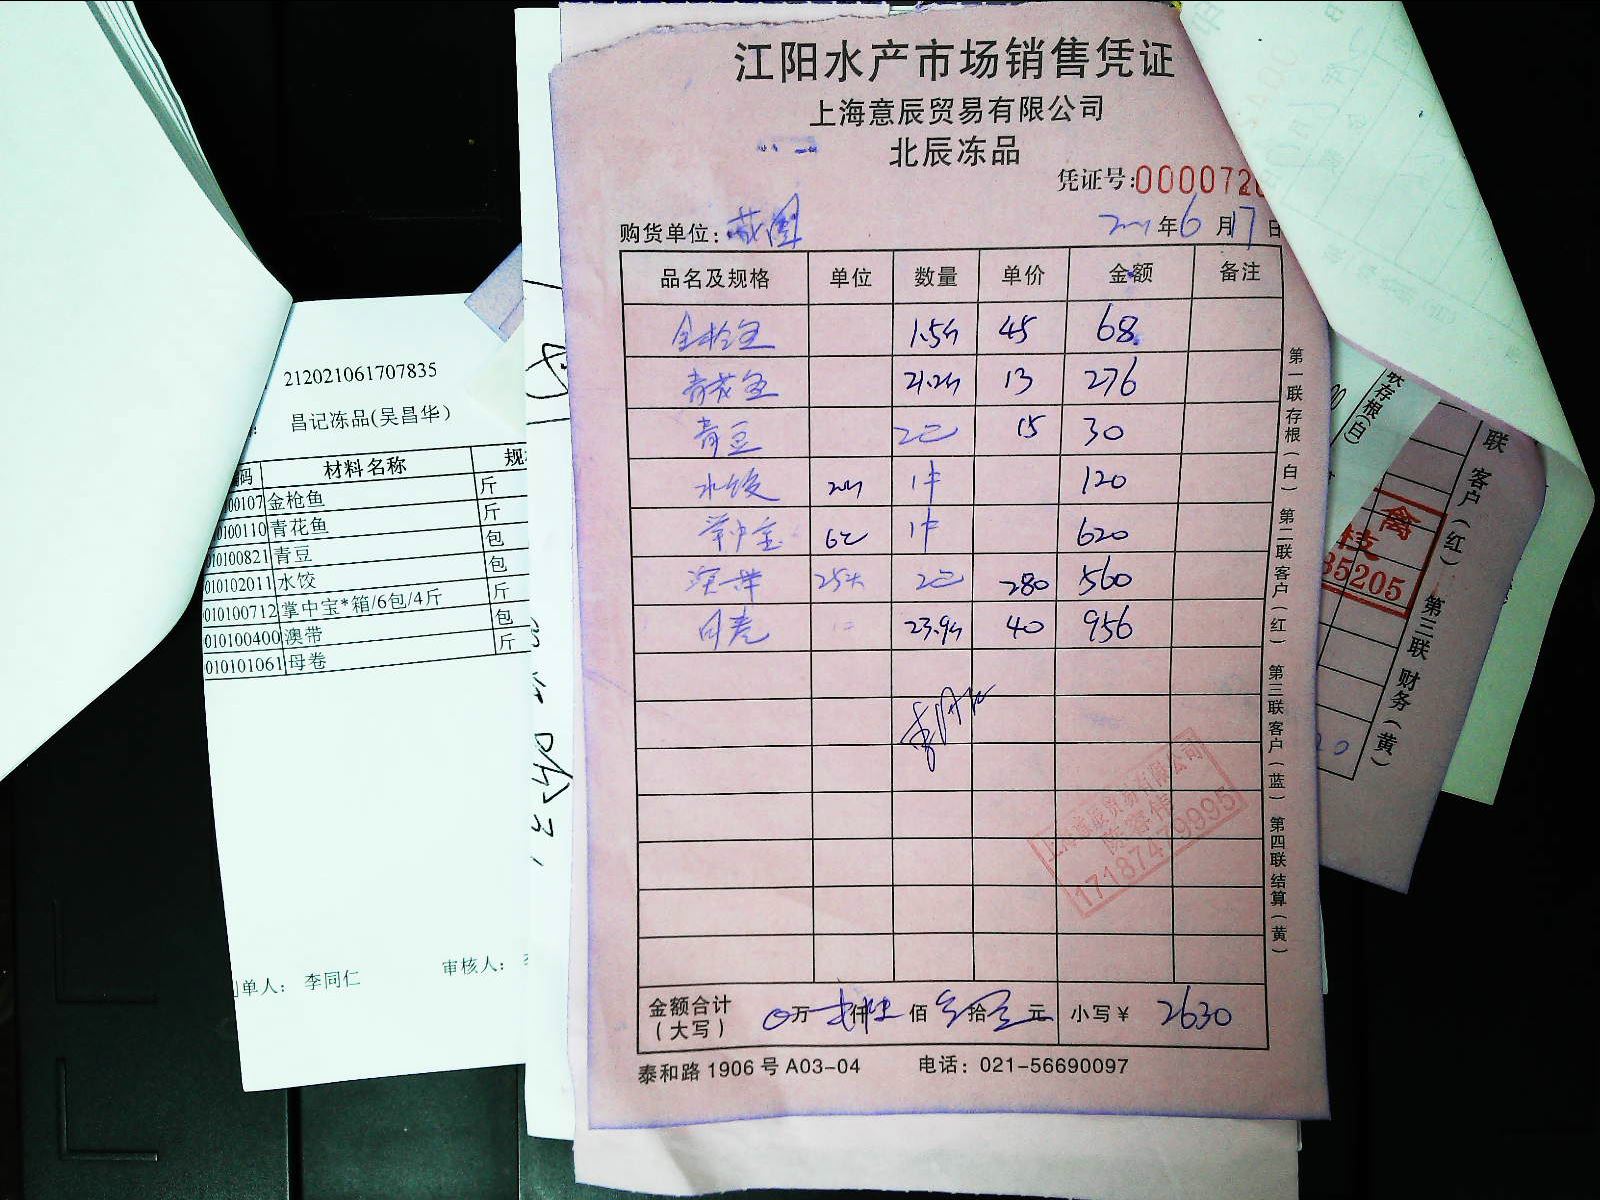 江阳水产市场销售凭证
上海意辰贸易有限公司
北辰冻品
凭证号:0000072
购货单位:
年 6 月 17 日
品名及规格 单位 数量 单价 金额 备注
金枪鱼 1.5斤 45 68
青花鱼 21.2斤 13 276
青豆 2包 15 30
水饺 1件 120
掌中宝 6包 1件 620
澳带 2包 280 560
母卷 23.9斤 40 956
金额合计
(大写)
万 仟 佰 拾 元 小写¥ 2630
泰和路1906号A03-04 电话:021-56690097
第一联存根(白) 第二联客户(红) 第三联客户(蓝) 第四联结算(黄)
上海意辰贸易有限公司
17187479995
212021061707835
昌记冻品(吴昌华)
码 材料名称 规
00107 金枪鱼 斤
0100110 青花鱼 斤
010100821 青豆 包
010102011 水饺 包
010100712 掌中宝*箱/6包/4斤 斤
010100400 澳带 包
010101061 母卷 斤
单人: 李同仁 审核人:
联存根(白)
联 客户(红) 第三联 财务(黄)
禽
枝
35205
20